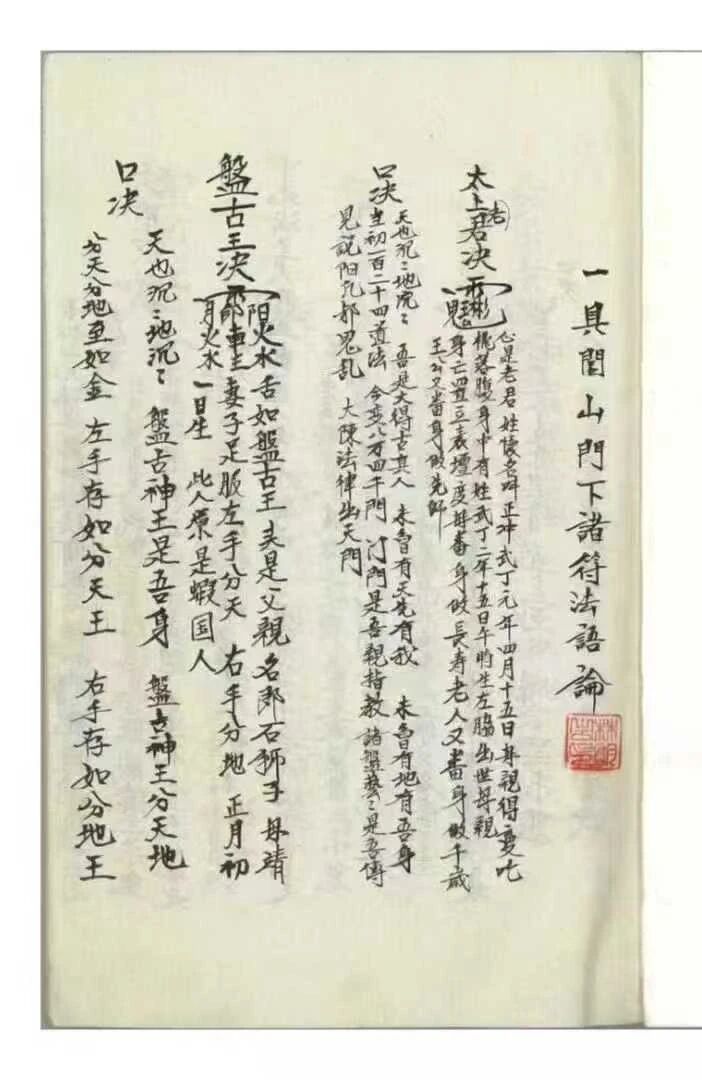 一具閭山門下諸符法語論
太上老君決
心是老君 姓 名叫正冲 武丁元年四月十五日母親得
桃落腹身中有姓 武丁二年十五日午时生左脇出世 母親
身亡 立表壇度母番身做長寿老人 又番身做千歲
王公又番身做先師
口决 天也沉〻地沉〻 吾是大得古真人 未曾有天先有我 未曾有地有吾身
生初一百二十四道法 今变八万四千門 门是吾親指教 諸盤 〻是吾傳
見說阳 都鬼乱 大陳法律出天門
盤古王決
陽火水舌如盤古王 夫是父親名郎石獅子 母靖
妻子足服左手分天 右手分地 正月初
月火水 一日生 此人原是蝦国人
口决 天也沉〻地沉〻 盤古神王是吾身 盤古神王分天地
分天分地至如金 左手存如分天王 右手存如分地王